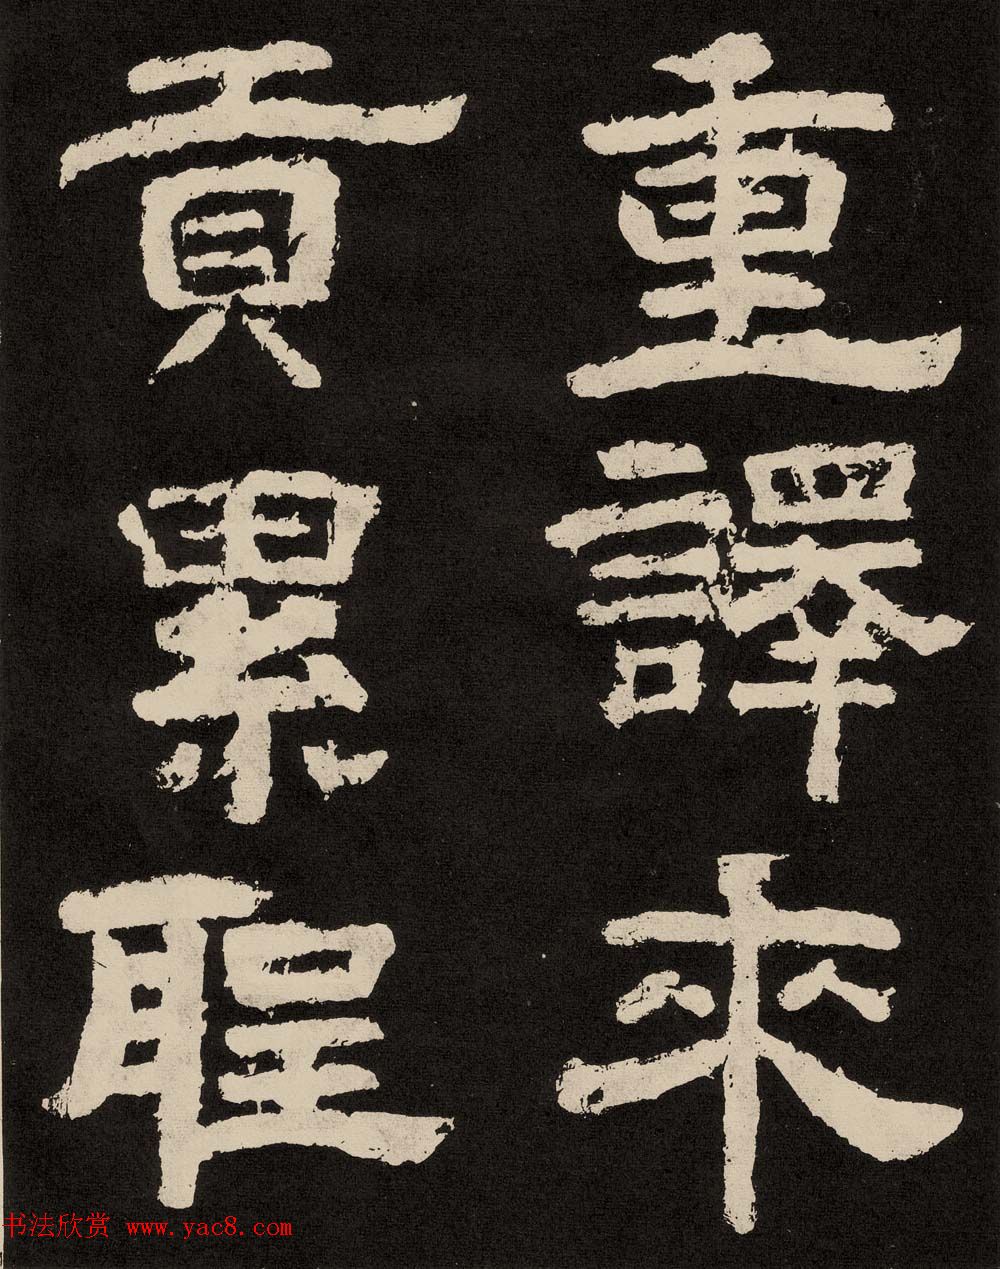 重譯來
貢累聖
书法欣赏 www.yac8.com